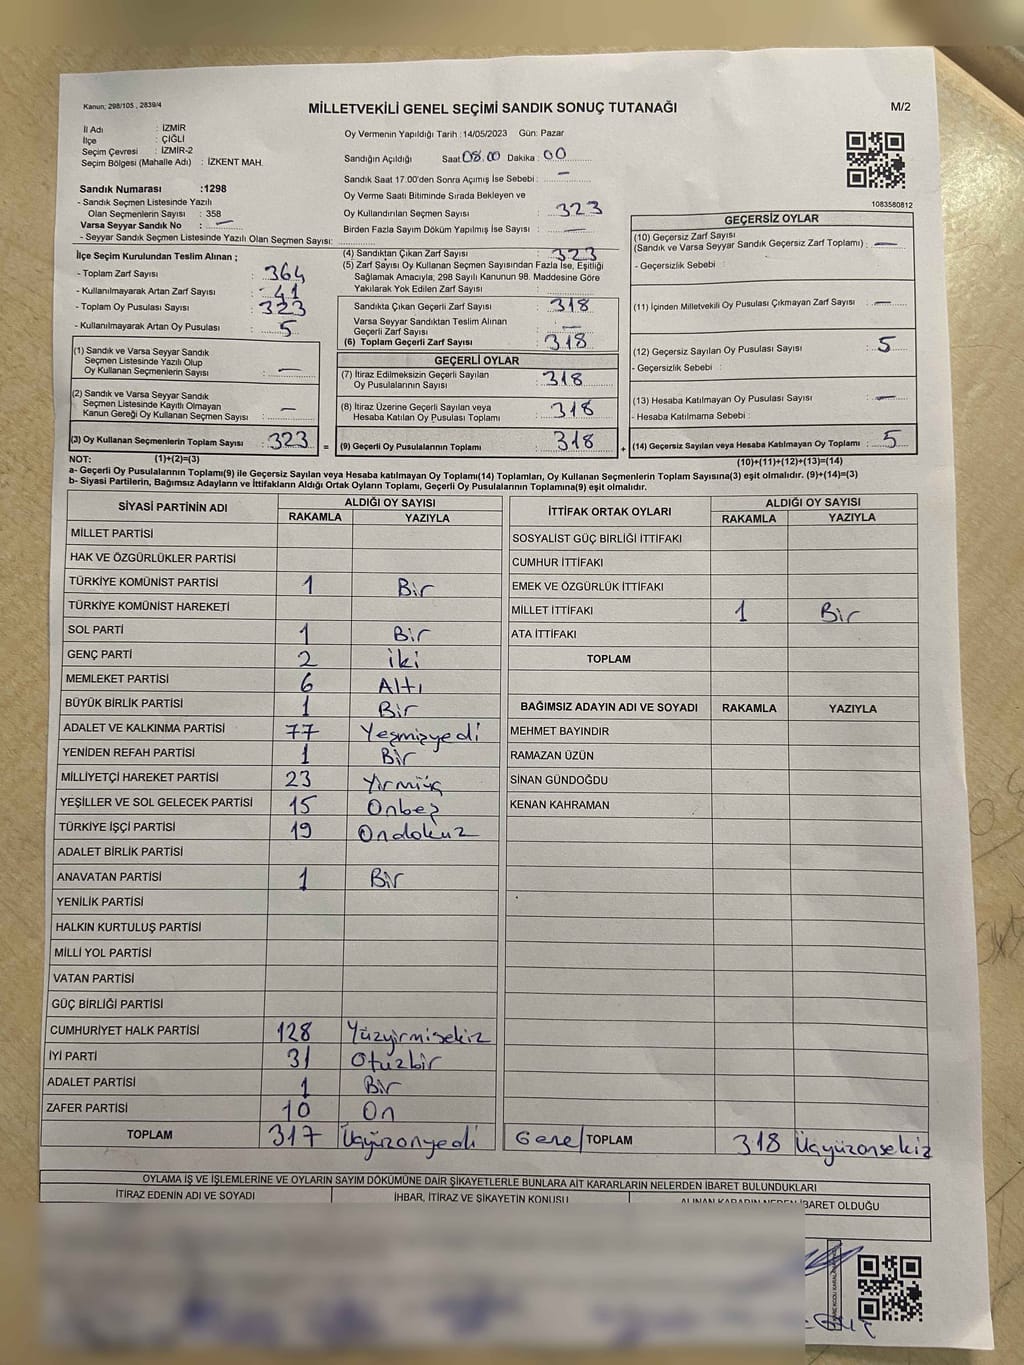 Kanun; 298/105 , 2839/4
MİLLETVEKİLİ GENEL SEÇİMİ SANDIK SONUÇ TUTANAĞI
M/2
İl Adı : İZMİR
İlçe : ÇİĞLİ
Seçim Çevresi : İZMİR-2
Seçim Bölgesi (Mahalle Adı) : İZKENT MAH.
Sandık Numarası :1298
- Sandık Seçmen Listesinde Yazılı
Olan Seçmenlerin Sayısı : 358
Varsa Seyyar Sandık No : —
- Seyyar Sandık Seçmen Listesinde Yazılı Olan Seçmen Sayısı:
İlçe Seçim Kurulundan Teslim Alınan ;
- Toplam Zarf Sayısı : 364
- Kullanılmayarak Artan Zarf Sayısı : 41
- Toplam Oy Pusulası Sayısı : 323
- Kullanılmayarak Artan Oy Pusulası : 5
(1) Sandık ve Varsa Seyyar Sandık
Seçmen Listesinde Yazılı Olup
Oy Kullanan Seçmenlerin Sayısı : —
(2) Sandık ve Varsa Seyyar Sandık
Seçmen Listesinde Kayıtlı Olmayan
Kanun Gereği Oy Kullanan Seçmen Sayısı : —
(3) Oy Kullanan Seçmenlerin Toplam Sayısı : 323 =
Oy Vermenin Yapıldığı Tarih : 14/05/2023 Gün: Pazar
Sandığın Açıldığı Saat 08.00 Dakika : 00
Sandık Saat 17.00'den Sonra Açımış İse Sebebi : —
Oy Verme Saati Bitiminde Sırada Bekleyen ve
Oy Kullandırılan Seçmen Sayısı : 323
Birden Fazla Sayım Döküm Yapılmış İse Sayısı : —
(4) Sandıktan Çıkan Zarf Sayısı : 323
(5) Zarf Sayısı Oy Kullanan Seçmen Sayısından Fazla İse, Eşitliği
Sağlamak Amacıyla, 298 Sayılı Kanunun 98. Maddesine Göre
Yakılarak Yok Edilen Zarf Sayısı :
Sandıkta Çıkan Geçerli Zarf Sayısı : 318
Varsa Seyyar Sandıktan Teslim Alınan
Geçerli Zarf Sayısı : —
(6) Toplam Geçerli Zarf Sayısı : 318
GEÇERLİ OYLAR
(7) İtiraz Edilmeksizin Geçerli Sayılan
Oy Pusulalarının Sayısı : 318
(8) İtiraz Üzerine Geçerli Sayılan veya
Hesaba Katılan Oy Pusulası Toplamı : 318
(9) Geçerli Oy Pusulalarının Toplamı : 318 +
1083580812
GEÇERSİZ OYLAR
(10) Geçersiz Zarf Sayısı
(Sandık ve Varsa Seyyar Sandık Geçersiz Zarf Toplamı) : —
- Geçersizlik Sebebi :
(11) İçinden Milletvekili Oy Pusulası Çıkmayan Zarf Sayısı : —
(12) Geçersiz Sayılan Oy Pusulası Sayısı : 5
- Geçersizlik Sebebi :
(13) Hesaba Katılmayan Oy Pusulası Sayısı : —
- Hesaba Katılmama Sebebi :
(14) Geçersiz Sayılan veya Hesaba Katılmayan Oy Toplamı : 5
NOT: (1)+(2)=(3)
(10)+(11)+(12)+(13)=(14)
a- Geçerli Oy Pusulalarının Toplamı(9) ile Geçersiz Sayılan veya Hesaba katılmayan Oy Toplamı(14) Toplamları, Oy Kullanan Seçmenlerin Toplam Sayısına(3) eşit olmalıdır. (9)+(14)=(3)
b- Siyasi Partilerin, Bağımsız Adayların ve İttifakların Aldığı Ortak Oyların Toplamı, Geçerli Oy Pusulalarının Toplamına(9) eşit olmalıdır.
SİYASİ PARTİNİN ADI ALDIĞI OY SAYISI
RAKAMLA YAZIYLA
MİLLET PARTİSİ
HAK VE ÖZGÜRLÜKLER PARTİSİ
TÜRKİYE KOMÜNİST PARTİSİ 1 Bir
TÜRKİYE KOMÜNİST HAREKETİ
SOL PARTİ 1 Bir
GENÇ PARTİ 2 iki
MEMLEKET PARTİSİ 6 Altı
BÜYÜK BİRLİK PARTİSİ 1 Bir
ADALET VE KALKINMA PARTİSİ 77 Yeşmişyedi
YENİDEN REFAH PARTİSİ 1 Bir
MİLLİYETÇİ HAREKET PARTİSİ 23 Yirmiüç
YEŞİLLER VE SOL GELECEK PARTİSİ 15 Onbeş
TÜRKİYE İŞÇİ PARTİSİ 19 Ondokuz
ADALET BİRLİK PARTİSİ
ANAVATAN PARTİSİ 1 Bir
YENİLİK PARTİSİ
HALKIN KURTULUŞ PARTİSİ
MİLLİ YOL PARTİSİ
VATAN PARTİSİ
GÜÇ BİRLİĞİ PARTİSİ
CUMHURİYET HALK PARTİSİ 128 Yüzyirmisekiz
İYİ PARTİ 31 Otuzbir
ADALET PARTİSİ 1 Bir
ZAFER PARTİSİ 10 On
TOPLAM 317 Üçyüzonyedi
İTTİFAK ORTAK OYLARI ALDIĞI OY SAYISI
RAKAMLA YAZIYLA
SOSYALİST GÜÇ BİRLİĞİ İTTİFAKI
CUMHUR İTTİFAKI
EMEK VE ÖZGÜRLÜK İTTİFAKI
MİLLET İTTİFAKI 1 Bir
ATA İTTİFAKI
TOPLAM
BAĞIMSIZ ADAYIN ADI VE SOYADI RAKAMLA YAZIYLA
MEHMET BAYINDIR
RAMAZAN ÜZÜN
SİNAN GÜNDOĞDU
KENAN KAHRAMAN
Genel TOPLAM 318 Üçyüzonsekiz
OYLAMA İŞ VE İŞLEMLERİNE VE OYLARIN SAYIM DÖKÜMÜNE DAİR ŞİKAYETLERLE BUNLARA AİT KARARLARIN NELERDEN İBARET BULUNDUKLARI
İTİRAZ EDENİN ADI VE SOYADI İHBAR, İTİRAZ VE ŞİKAYETİN KONUSU ALINAN KARARIN NEDEN İBARET OLDUĞU